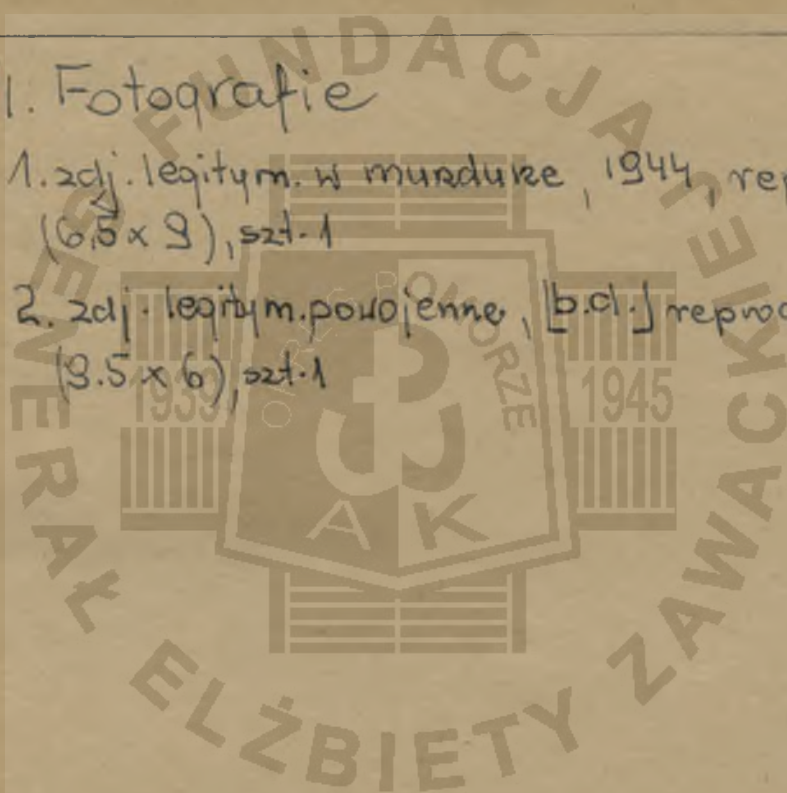 I. Fotografie
1. zdj. legitym. w mundurze, 1944, rep
(6.5 x 9), szt. 1
2. zdj. legitym. powojenne, [b.d.] reprod
(9.5 x 6), szt. 1
FUNDACJA GENERAŁ ELŻBIETY ZAWACKIEJ
OKRĘG POMORZE
1939 1945
AK